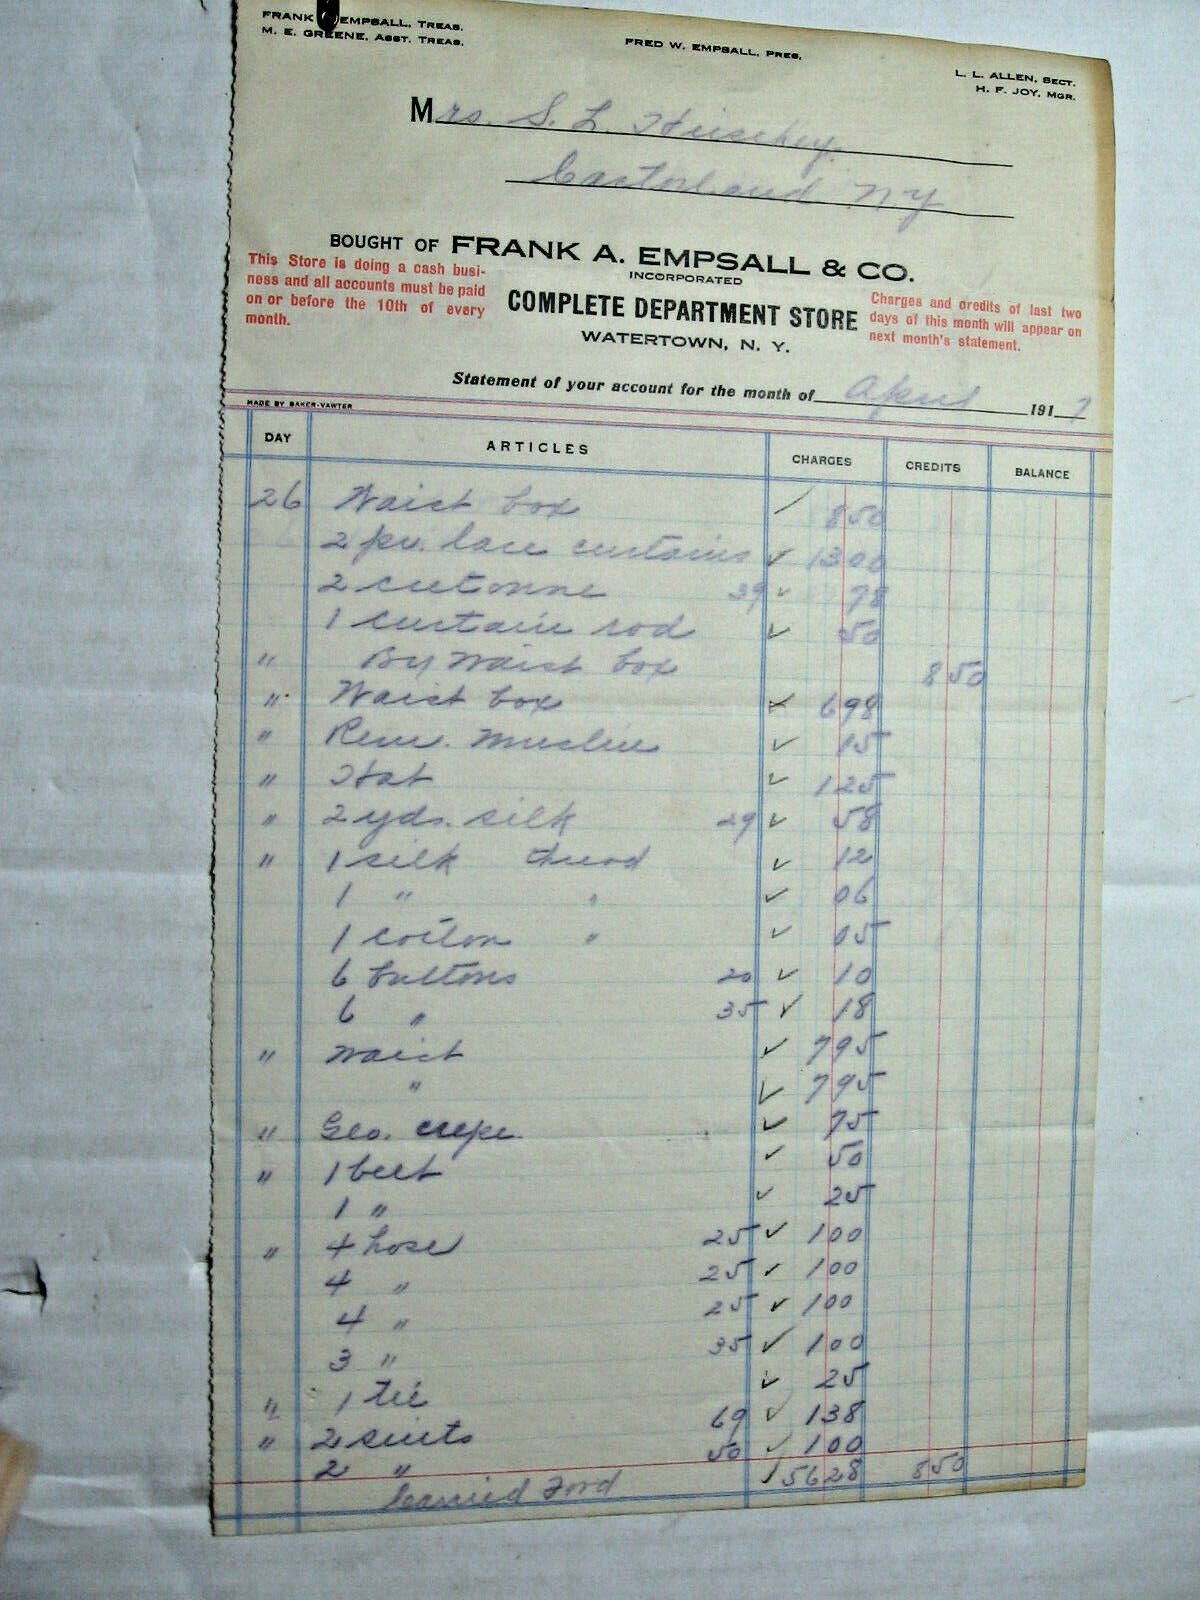 FRANK EMPSALL, TREAS.
M. E. GREENE, ASST. TREAS.
FRED W. EMPSALL, PRES.
L. L. ALLEN, SECT.
H. F. JOY, MGR.
Mrs. S. L.
Castorland NY
BOUGHT OF FRANK A. EMPSALL & CO.
INCORPORATED
COMPLETE DEPARTMENT STORE
WATERTOWN, N. Y.
This Store is doing a cash busi-
ness and all accounts must be paid
on or before the 10th of every
month.
Charges and credits of last two
days of this month will appear on
next month's statement.
Statement of your account for the month of April 1917
MADE BY BAKER-VAWTER
DAY ARTICLES CHARGES CREDITS BALANCE
26 Waist box ✓ 850
2 pr. lace curtains ✓ 1300
2 cretonne 39 ✓ 78
1 curtain rod ✓ 50
" By Waist box 850
" Waist box ✓ 698
" Rem. Muslin ✓ 15
" Hat ✓ 125
" 2 yds. silk 29 ✓ 58
" 1 silk thread ✓ 12
1 " " ✓ 06
1 cotton " ✓ 05
6 buttons 20 ✓ 10
6 " 35 ✓ 18
" Waist ✓ 795
" ✓ 795
" Geo. crepe ✓ 75
" 1 belt ✓ 50
1 " ✓ 25
" 4 hose 25 ✓ 100
4 " 25 ✓ 100
4 " 25 ✓ 100
3 " 35 ✓ 100
" 1 tie ✓ 25
" 2 suits 69 ✓ 138
2 " 50 ✓ 100
Carried Ford ✓ 5628 850